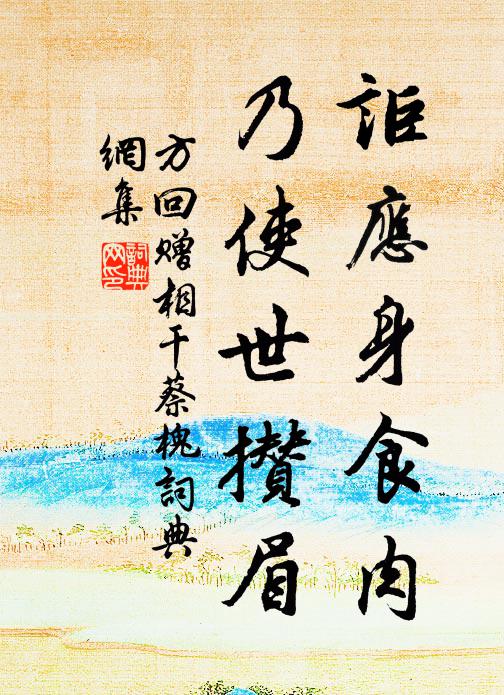 詎應身食肉
乃使世攢眉
方回贈相干蔡槐詞典
網集
詞典網印